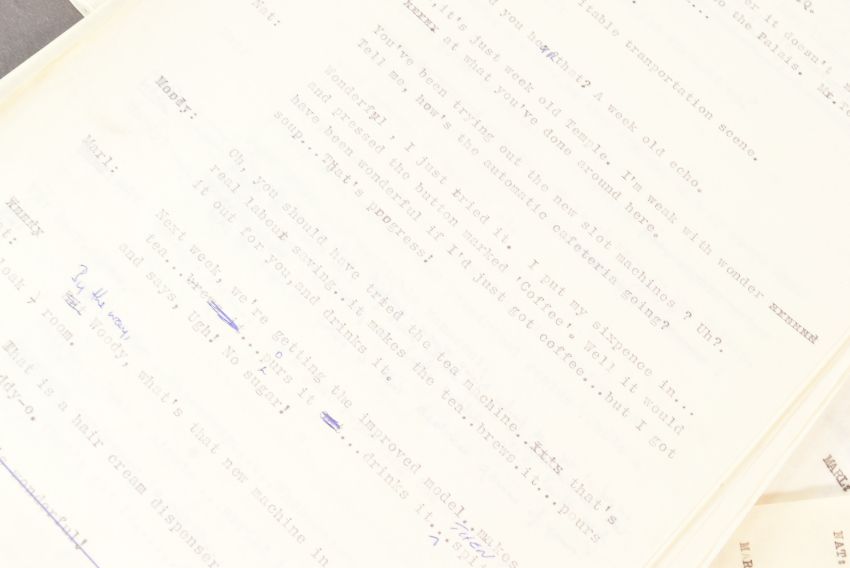 er it doesn't m
o the Palais. Mr. Te
itable tranportation scene.
d you hear that? A week old echo.
it's just week old Temple. I'm weak with wonder xxxxxx
xxxxx at what you've done around here.
Nat:
You've been trying out the new slot machines ? Uh?.
Tell me, how's the automatic cafeteria going?
Woody:
Wonderful , I just tried it. I put my sixpence in...
and pressed the button marked 'Coffee'. Well it would
have been wonderful if I'd just got coffee...but I got
soup...That's progress!
Marl:
Oh, you should have tried the tea machine..it's that's
real labour saving..it makes the tea..brews it...pours
it out for you,and drinks it.
Next week, we're getting the improved model..makes
tea...brews...pours it ...drinks it..then.spl
and says, Ugh! No sugar!
By the way,
Woody, what's that new machine in
loak room.
That is a hair cream dispenser
ddy-o.
wonderful!
MARL:
NAT:
MAR